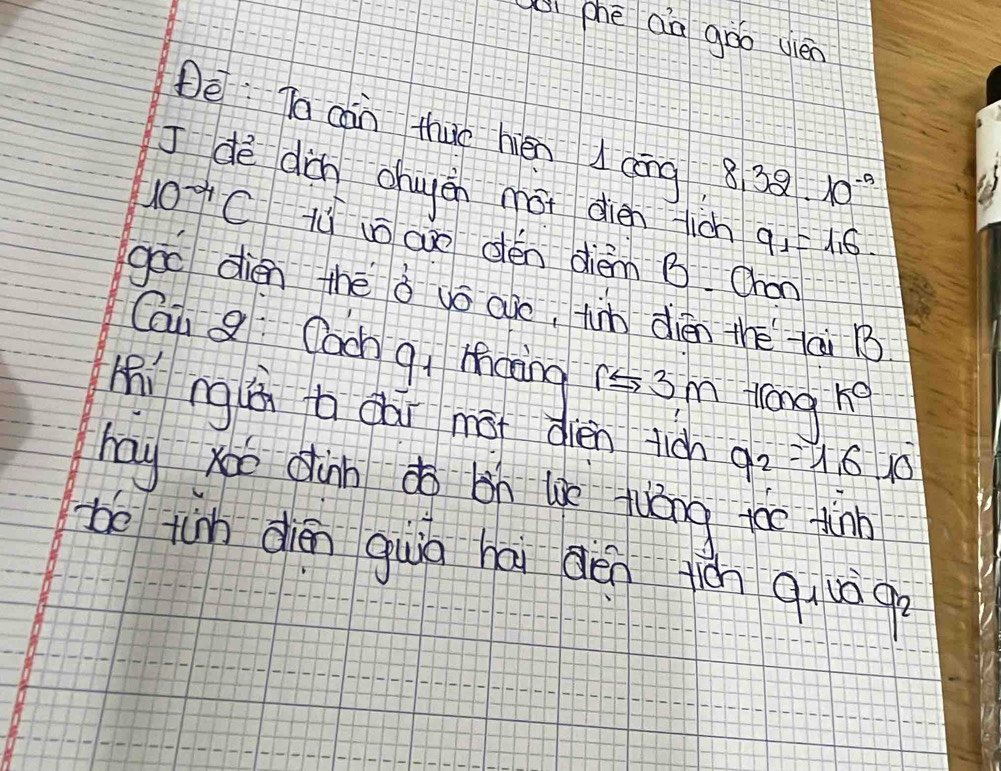 phê của giáo viên
Đề: Ta cần thực hiện 1 công 8,32.10⁻⁹
J để dịch chuyển một điện tích q₁ = 1,6.
10⁻⁴ C từ vô cực đến điểm B. Chọn
gốc điện thế ở vô cực, tính điện thế tại B.
Câu 2: Cách q₁ khoảng 3m trong k⁰
khí người ta đặt một điện tích q₂ = 1,6.10
hãy xác định độ lớn lực tương tác tính
tác tĩnh điện giữa hai điện tích q₁ và q₂